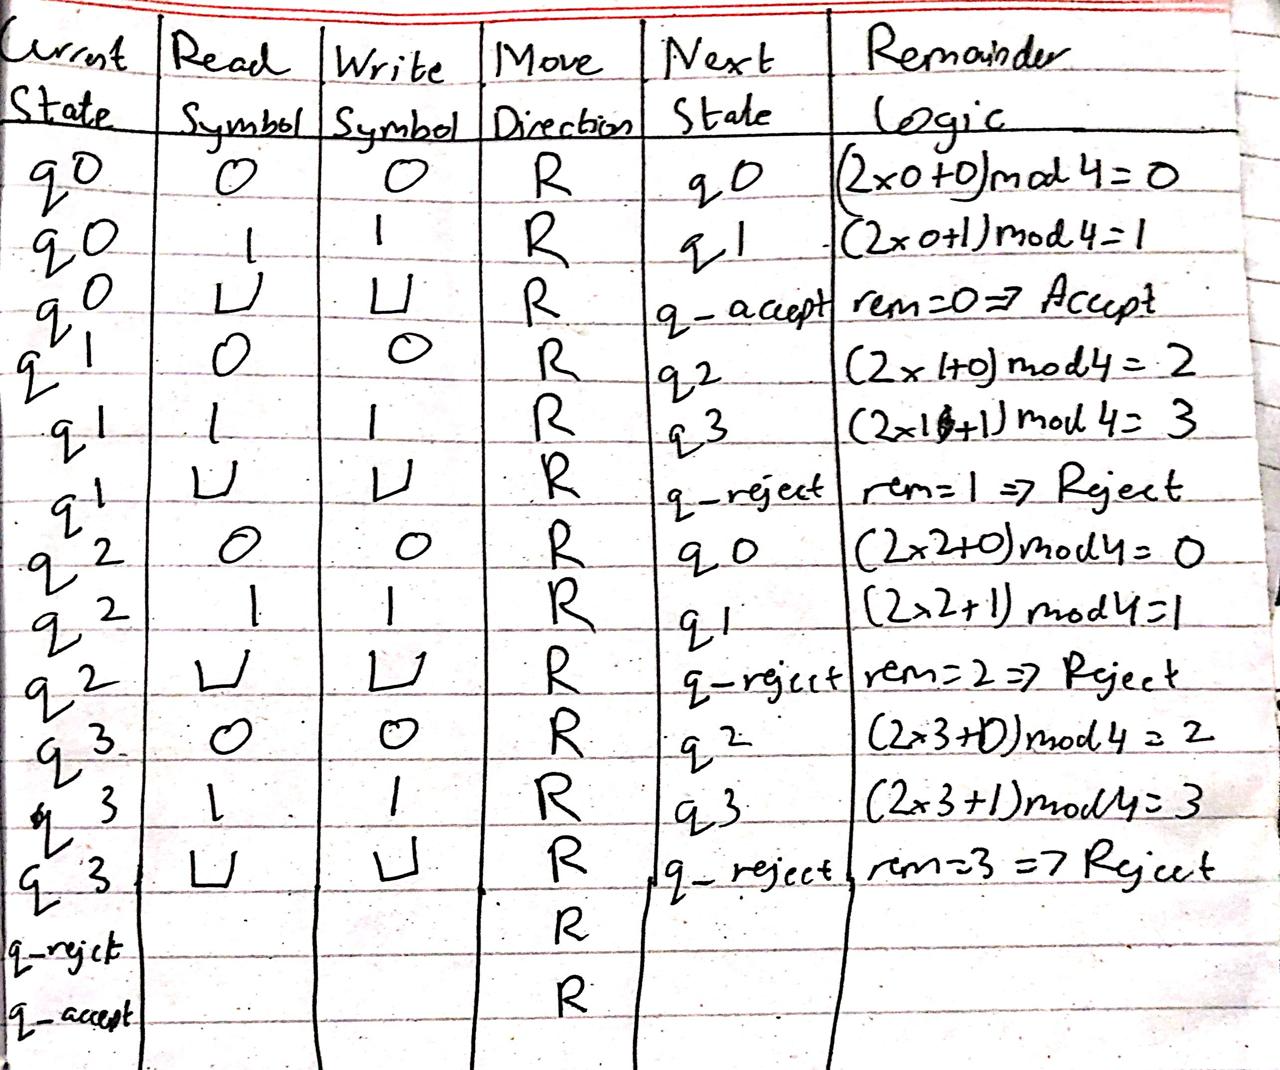 Current State Read Symbol Write Symbol Move Direction Next State Remainder Logic
q0 0 0 R q0 (2x0+0)mod 4=0
q0 1 1 R q1 (2x0+1)mod 4=1
q0 ⊔ ⊔ R q-accept rem=0=> Accept
q1 0 0 R q2 (2x1+0)mod4=2
q1 1 1 R q3 (2x1+1)mod 4=3
q1 ⊔ ⊔ R q-reject rem=1=> Reject
q2 0 0 R q0 (2x2+0)mod4=0
q2 1 1 R q1 (2x2+1)mod4=1
q2 ⊔ ⊔ R q-reject rem=2=> Reject
q3 0 0 R q2 (2x3+0)mod4=2
q3 1 1 R q3 (2x3+1)mod4=3
q3 ⊔ ⊔ R q-reject rem=3=> Reject
q-rejct R
q-accept R